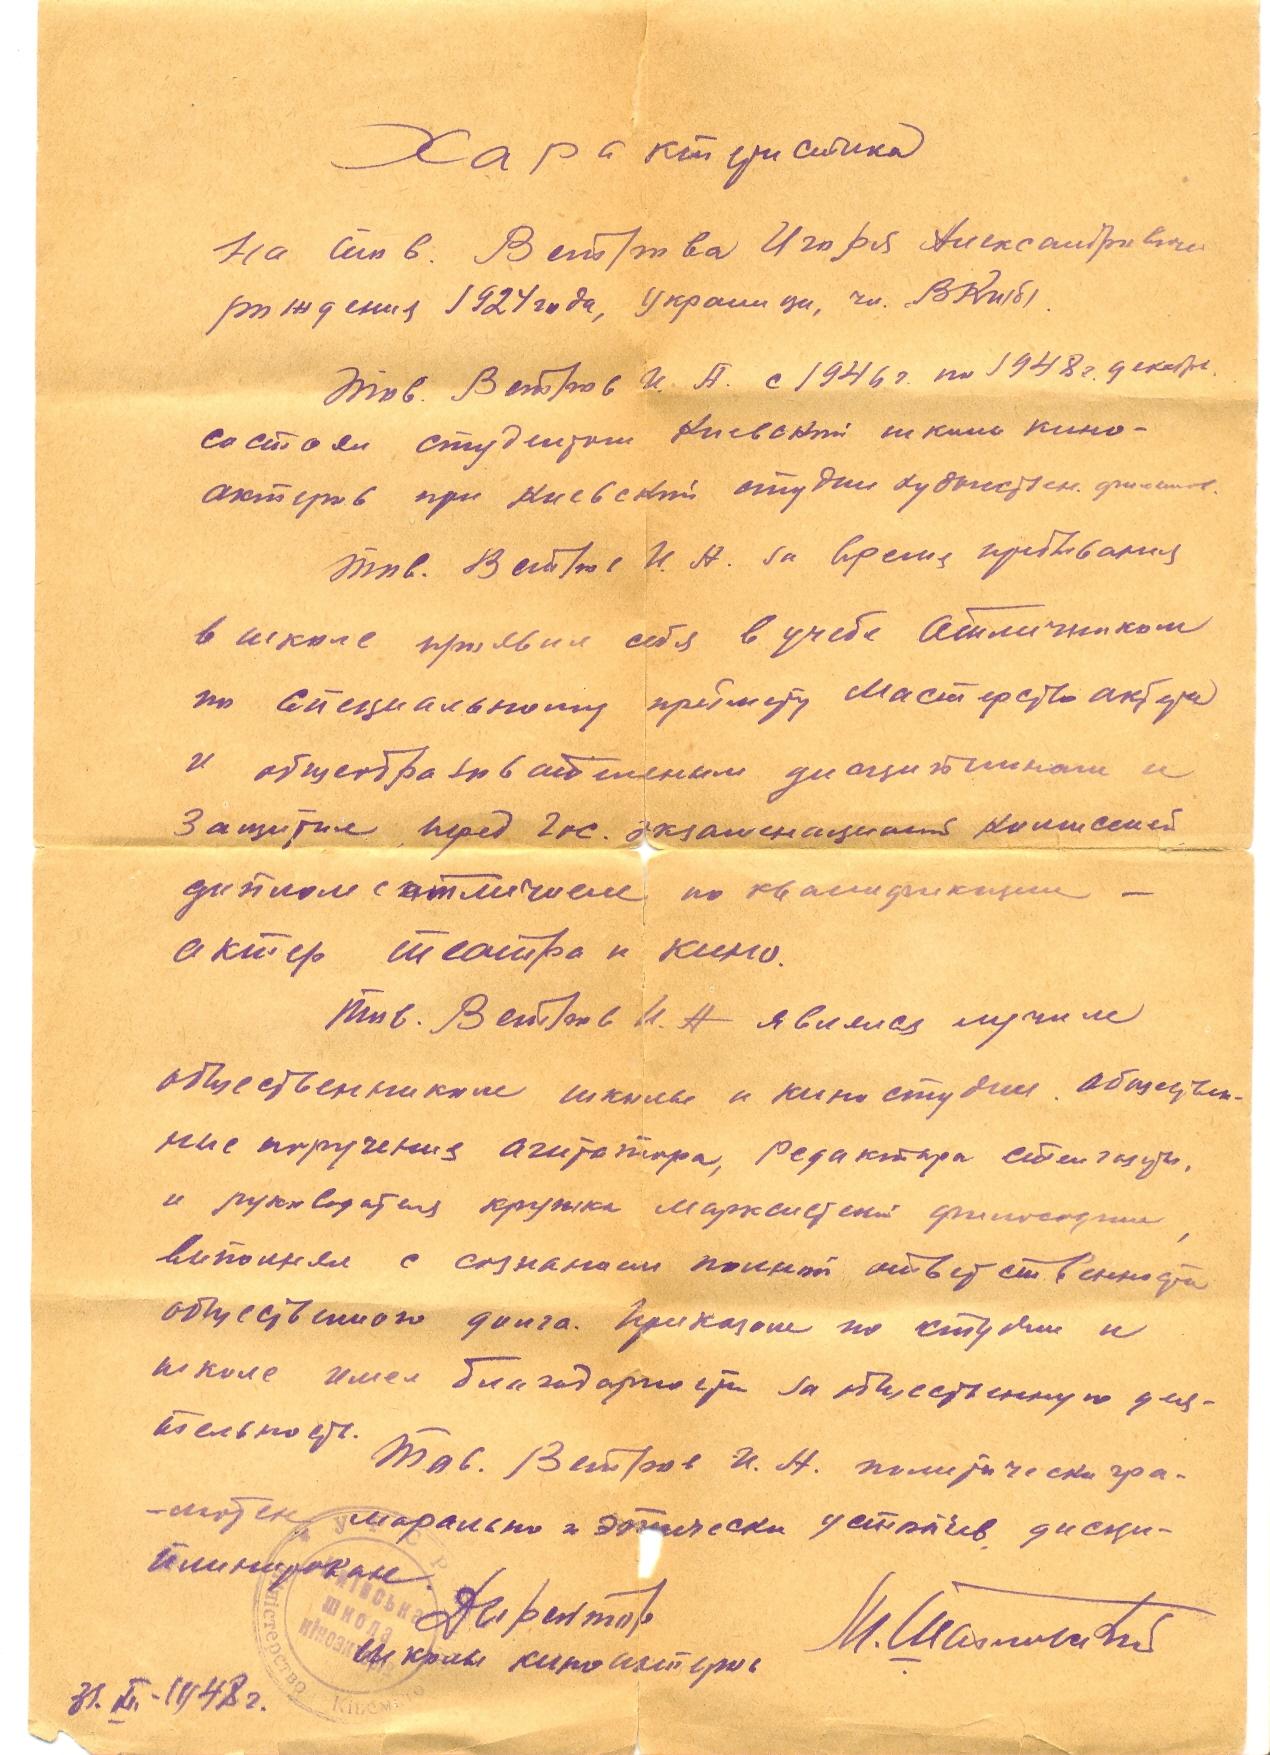 Характеристика
На тов. Ветрова Игоря Александровича
рождения 1924 года, украинца, чл. ВКП(б).
Тов. Ветров И. А. с 1946 г. по 1948 г. декабрь
состоял студентом Киевской школы кино-
актеров при Киевской студии художествен. фильмов.
Тов. Ветров И. А. за время пребывания
в школе проявил себя в учебе отличником
по специальному предмету Мастерство актера
и общеобразовательным дисциплинам и
защитил перед Гос. экзаменационной комиссией
диплом с отличием по квалификации –
актер театра и кино.
Тов. Ветров И. А. являлся лучшим
общественником школы и киностудии. Обществен-
ные поручения агитатора, редактора стенгазеты,
и руководителя кружка марксистской философии,
выполнял с сознанием полной ответственности
общественного долга. Приказом по студии и
школе имел благодарности за общественную дея-
тельность.
Тов. Ветров И. А. политически гра-
-мотен, морально и этически устойчив, дисци-
плинирован.
Директор
школы киноактеров
31. XII - 1948 г.
У Р С Р
Міністерство
Київська
школа
кіноакторів